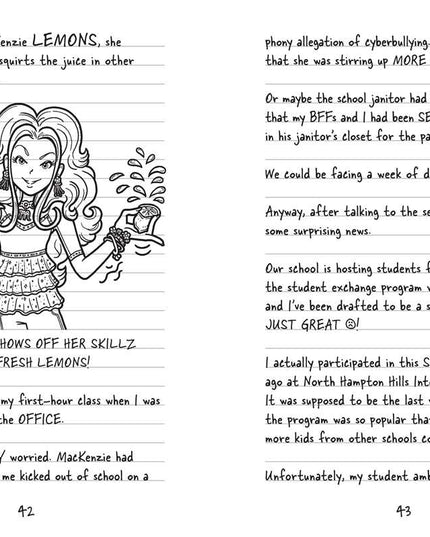 enzie LEMONS, she
squirts the juice in other
HOWS OFF HER SKILLZ
FRESH LEMONS!
my first-hour class when I was
the OFFICE.
worried. MacKenzie had
me kicked out of school on a
42
phony allegation of cyberbullying.
that she was stirring up MORE
Or maybe the school janitor had
that my BFFs and I had been SE
in his janitor's closet for the pa
We could be facing a week of d
Anyway, after talking to the se
some surprising news.
Our school is hosting students f
the student exchange program
and I've been drafted to be a s
JUST GREAT ☹!
I actually participated in this S
ago at North Hampton Hills Int
It was supposed to be the last
the program was so popular tha
more kids from other schools c
Unfortunately, my student amb
43